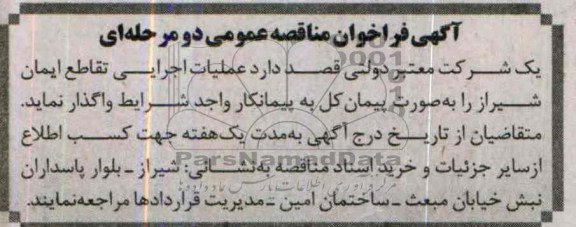 آگهی فراخوان مناقصه عمومی دو مرحله‌ای
یک شرکت معتبر دولتی قصد دارد عملیات اجرایی تقاطع ایمان
شیراز را به‌صورت پیمان کل به پیمانکار واجد شرایط واگذار نماید.
متقاضیان از تاریخ درج آگهی به‌مدت یک‌هفته جهت کسب اطلاع
ازسایر جزئیات و خرید اسناد مناقصه به‌نشانی: شیراز ـ بلوار پاسداران
ParsNamadData
نبش خیابان مبعث ـ ساختمان امین ـ مدیریت قراردادها مراجعه‌نمایند.